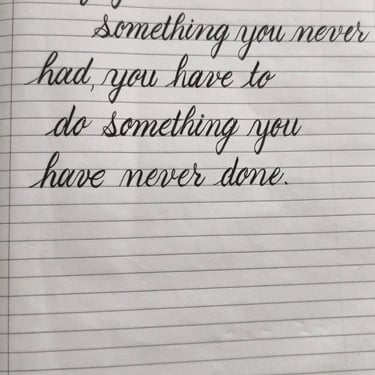 something you never
had, you have to
do something you
have never done.